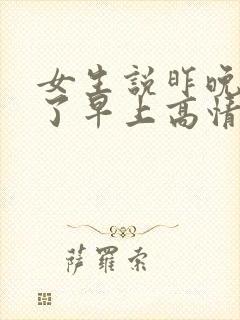 女生説昨晚
了早上高情
萨羅索